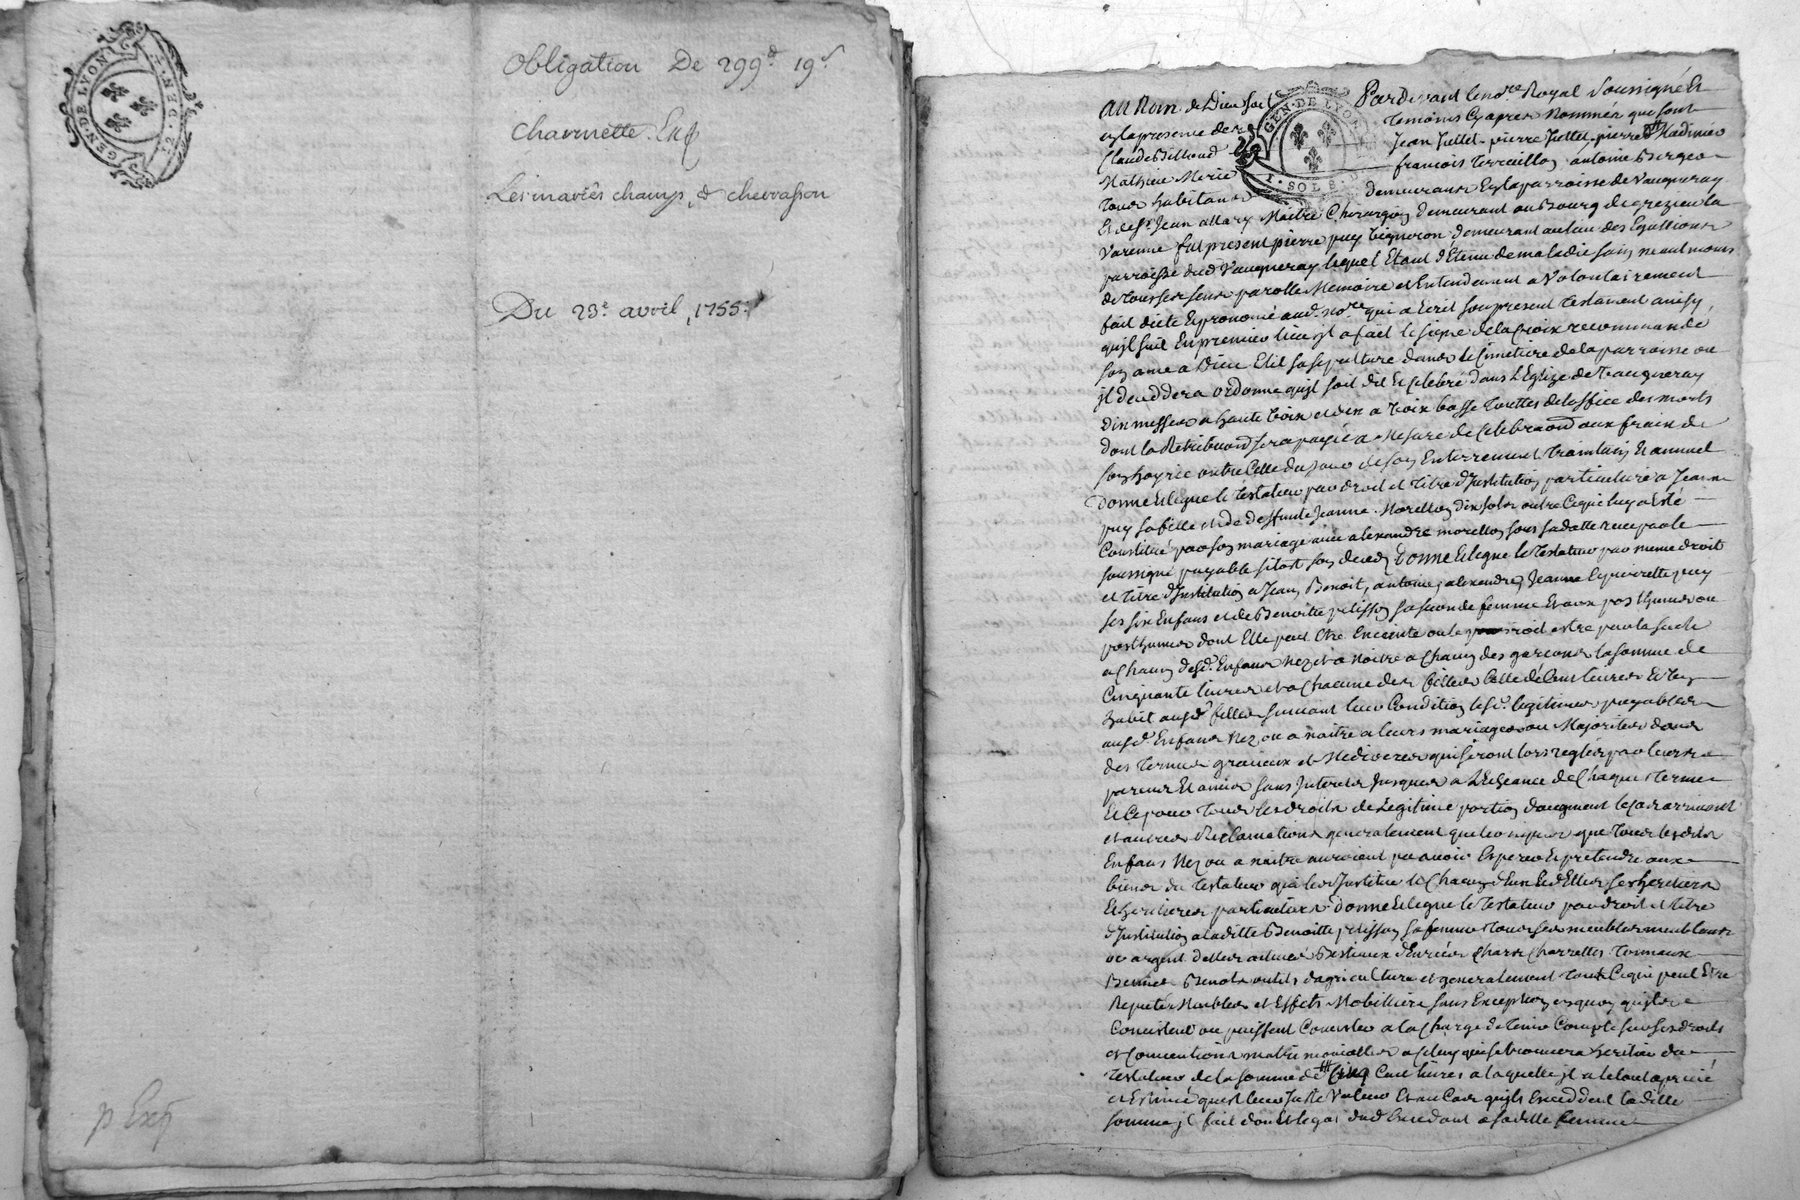 GEN·DE LYON
Obligation De 299# 19s
charmette. Exp
Les mariés champ, & chevrasson
Du 23e avril, 1755.
p Exp
GEN·DE LYON
1·SOL 8·D
Au Nom de Dieu soit Pardevant le no.re Royal Soussigné Et
en la presence de temoins Cyapres Nommés qui sont
Claude Billoud Jean Jullet, pierre Jullet, pierre
Mathieu Merie françois terraillon antoine Berger
tous habitans demeurans En la parroisse de Vaugneray
Et de Sr Jean allary Maitre Chirurgien demeurant au Bourg de grezieu la
Varenne fut present pierre puy Vigneron demeurant au lieu des
parroisse dud Vaugneray lequel Etant détenu de maladie sain neantmoins
de tous ses sens parolle Memoire et Entendement a Volontairement
fait dicté Et prononcé aud. no.re qui a Ecrit son present testament ainsy
qu'jl suit En premier lieu jl a fait le signe de la Croix recommandé
son ame a Dieu Elit sa sepulture dans le Cimetiere de la parroisse ou
jl decedera ordonne qu'jl soit dit Et Celebré dans L'Eglize de Vaugneray
Dix messes a haute Voix et dix a Voix basse touttes de loffice des morts
dont la Retribuaon sera payée a Mesure de Celebraon aux frais de
son hoyrie outre Celle du jour de son Enterrement trantain Et annuel
Donne Et legue le testateur par droit et titre d'Institution particuliere a Jeanne
puy sa fille et de deffunte Jeanne Morellon dix sols outre Ce qui luy a Eté
Constitué par son mariage avec alexandre morellon sous sa datte receu par le
soussigné payable sitost son deced Donne Et legue le testateur par meme droit
et titre d'Institution a Jean, Benoit, antoine, alexandre, Jeanne Et pierrette puy
ses six Enfans et de Benoitte pitisson sa seconde femme Et aux posthumes ou
posthumes dont Elle peut Etre Enceinte ou le pourroit estre par la suite
a Chaun desd. Enfans Nez et a naitre a Chaun des garçons la somme de
Cinquante livres et a Chacune des filles Celle de Cent livres Et un
habit ausd. filles suivant leur Condition lesd. legitimes payables
ausd. Enfans Nez ou a naitre a leurs mariages ou Majorites dans
des termes gracieux et Mediocres qui seront lors reglés par leurs
parens Et amis sans Interets Jusques a L'Echeance de Chaque terme
Et Ce pour tous les droits de Legitime portion d'augment
et autres Reclamations generalement quelconques que tous lesdits
Enfans Nez ou a naitre auroient pu avoir Esperer Et pretendre aux
biens du testateur qui les Institue et Chacun d'Eux Et d'Elles ses heritiers
Et heritieres particuliers Donne Et legue le testateur par droit et titre
d'Institution a laditte Benoitte pitisson sa femme tous ses meubles meublans
or argent dettes actives Bestiaux denrées Chars Charrettes tonneaux
Bennes Benots outils d'agriculture et generalement tout Ce qui peut Etre
Reputés Meubles et Effets Mobilliers sans Exception en quoy qu'jls
Consistent ou puissent Consister a la Charge de tenir Compte sur ses droits
et Conventions matrimonialles a Celuy qui se trouvera heritier du
testateur de la somme de Cinq Cent livres a laquelle jl a le tout aprécié
et Estimé quest leur Juste Valeur Et au Cas qu'jls Excedent laditte
somme jl fait don Et legat dud Excedant a saditte femme